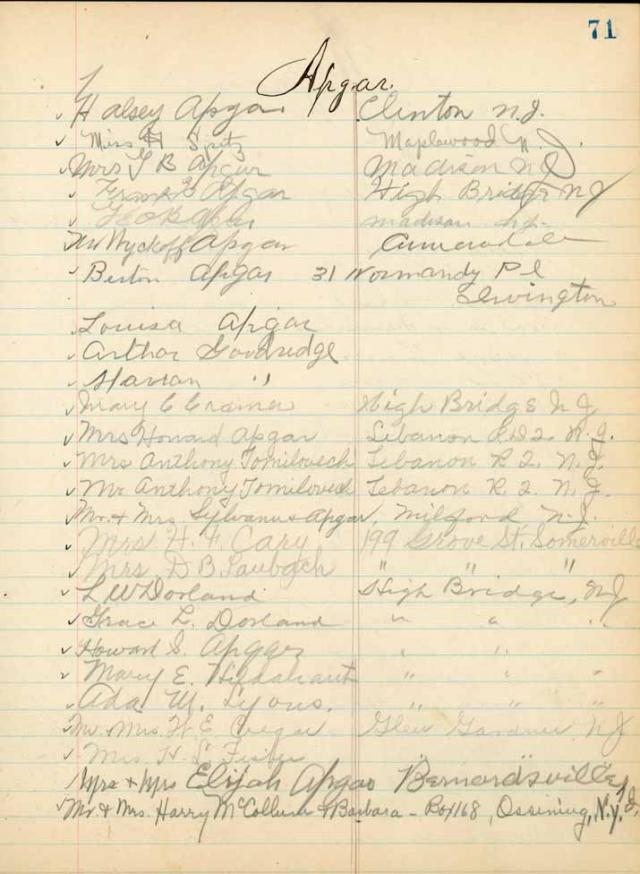 71
Apgar.
Halsey Apgar Clinton N.J.
Miss H Spitz Maplewood N.J.
Mrs J B Apgar Madison NJ
Frank B Apgar High Bridge NJ
Apgar Madison
Wyckoff Apgar Annandale
Burton Apgar 31 Normandy Pl
Irvington
Louisa Apgar
Arthur Goodridge
Marian "
Mary C Cramer High Bridge N.J.
Mrs Howard Apgar Lebanon R.D 2. N.J.
Mrs Anthony Tomilovech Lebanon R. 2. N.J.
Mr Anthony Tomilovech Lebanon R. 2. N.J.
Mr. & Mrs. Sylvanus Apgar, Milford N.J.
Mrs. H. F. Cary 199 Grove St. Somerville
Mrs. D B Laubach " " "
L W Dorland High Bridge, NJ
Grace L. Dorland " " "
Howard S. Apgar " "
Mary E. " " "
Ada M. Lyons. " " "
Mr. Mrs. H. E. Glen Gardner NJ
Mrs. H. S. Fisher "
Mrs & Mrs Elijah Apgar Bernardsville,
Mr. & Mrs. Harry McCollum & Barbara - Box 168, Ossining, N.Y.